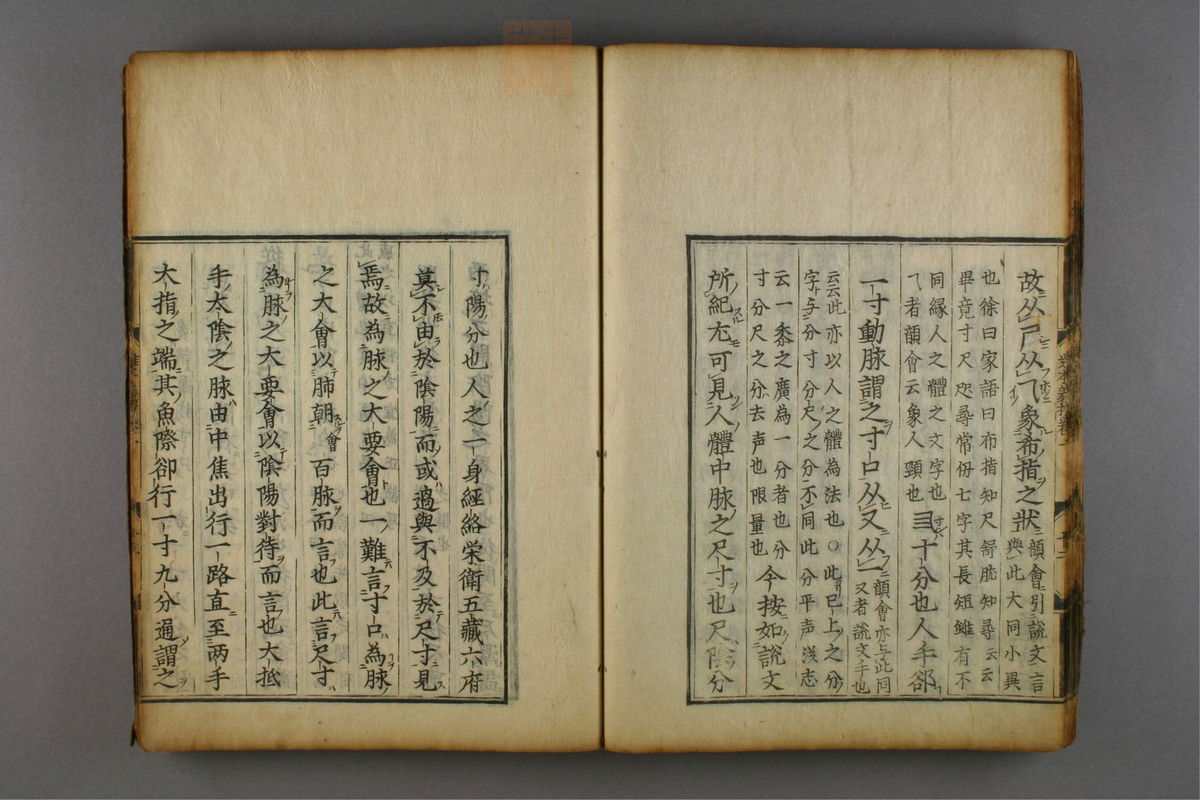 故从尸从乁象布指之状韻會引説文言
與此大同小異
也徐曰家語曰布指知尺舒肱知尋云云
畢竟寸尺咫尋常仞七字其長短雖有不
同緣人之體之文字也
乁者韻會云象人頸也
彐十分也人手郤
一寸動脉謂之寸口从又从一韻會亦与此同
又者説文手也
云云此亦以人之體為法也○此已上之分
字与分寸分尺之分不同此分平声浅志
云一黍之廣為一分者也分
寸分尺之分去声也限量也
今按如説文
所紀尤可見人體中脉之尺寸也尺陰分
寸陽分也人之一身經絡栄衛五藏六府
莫不由於陰陽而或過與不及於尺寸見
焉故為脉之大要會也一難言寸口為脉
之大會以肺朝會百脉而言也此言尺寸
為脉之大要會以陰陽對待而言也大抵
手太陰之脉由中焦出行一路直至两手
大指之端其魚際卻行一寸九分通謂之